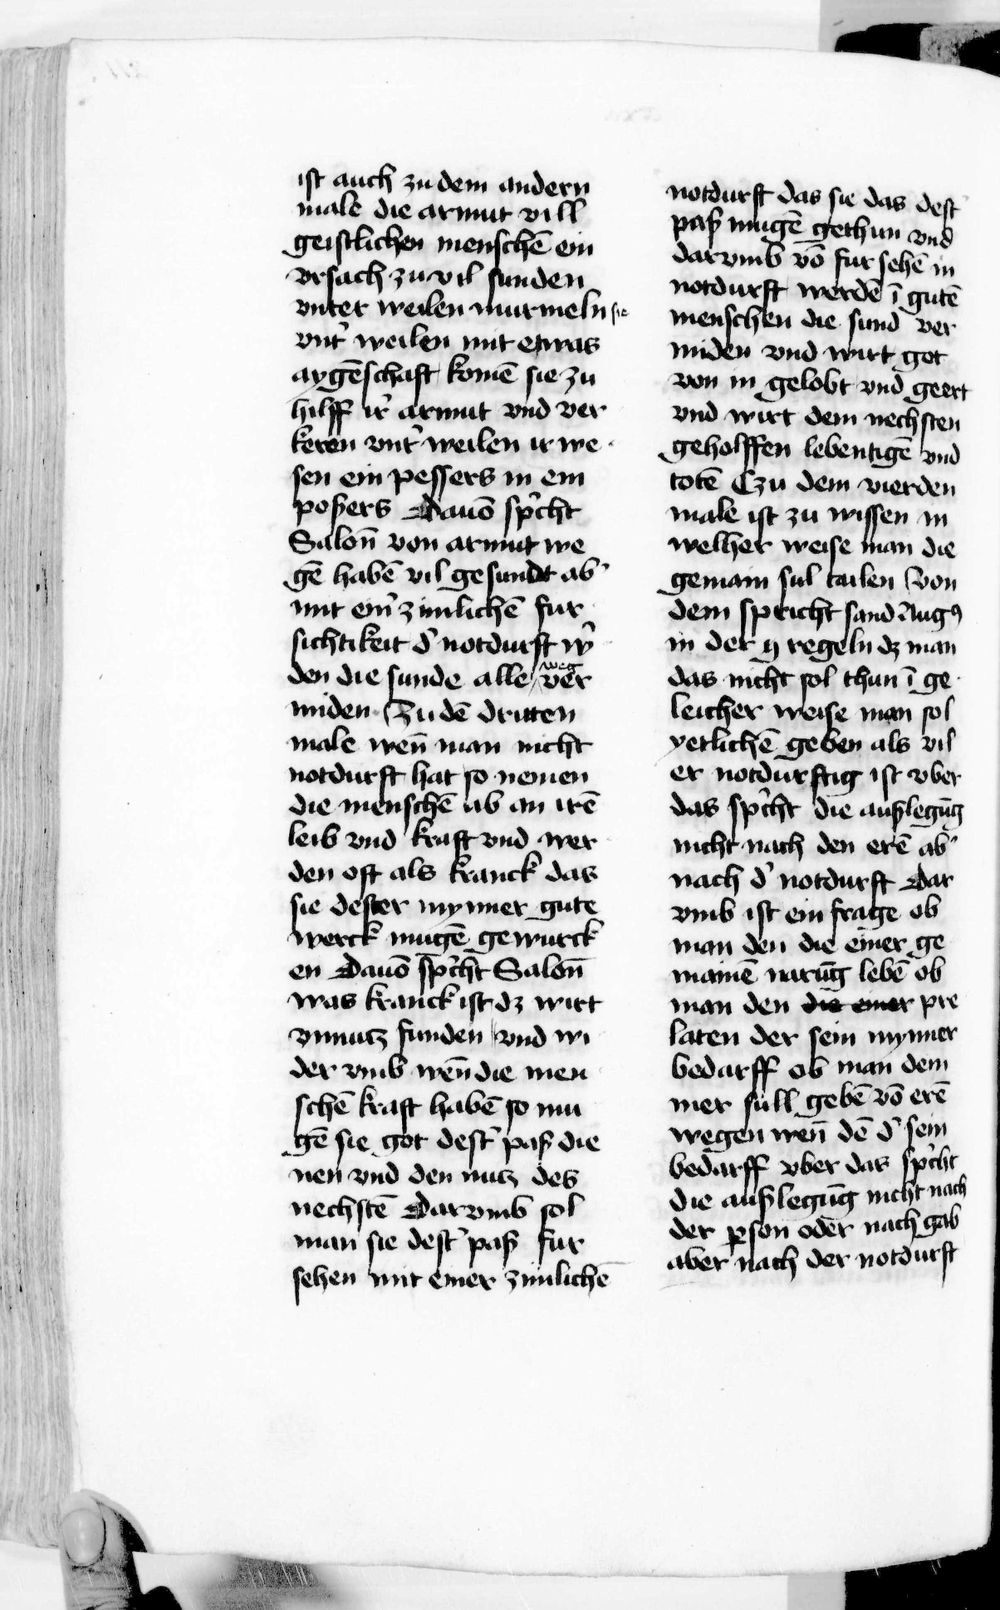 ist auch zu dem andern
male die armut vill
geistlichen menschē ein
vrsach zu vil sunden
vnter weilen murmeln sie
vnt' weilen mit etwas
aygēschaft komē sie zu
hilff ir' armut vnd ver
keren vnt' weilen ir we
sen ein pessers in ein
poßers Dauō sp'cht
Salon̄ von armut we
gē habē vil gesundt ab'
mit ein' zimlichē fur
sichtikeit d' notdurft w'
den die sunde alle weg ver
miden Zu dē dritten
male wen̄ man nicht
notdurft hat so nemen
die menschē ab an irē
leib vnd kraft vnd wer
den oft als kranck das
sie dester mynner gute
werck mugē gewurck
en Dauō sp'cht Salon̄
was kranck ist dz wirt
vnnutz funden vnd wi
der vmb wen̄ die men
schē kraft habē so mu
gē sie got dest' paß die
nen vnd den nutz des
nechstē Darvmb sol
man sie dest' paß fur
sehen mit einer zimlichē
notdurft das sie das dest'
paß mugē gethun vnd
darvmb vō fur sehē in
notdurft werdē ī gutē
menschen die sund ver
miden vnd wirt got
von in gelobt vnd geert
vnd wirt dem nechsten
geholffen lebentigē vnd
totē Czu dem vierden
male ist zu wissen in
welher weise man die
gemain sul tailen Von
dem spricht sand Augꝰ
in der y regeln dz man
das nicht sol thun ī ge
leicher weise man sol
yetlichē geben als vil
er notdurftig ist vber
das sp'cht die außlegūg
nicht nach den erē ab'
nach d' notdurft Dar
vmb ist ein frage ob
man den die einer ge
mainē narūg lebē ob
man den die einer pre
laten der sein mynner
bedarff ob man dem
mer sull gebē vō erē
wegen wen̄ dē d' sein
bedarff vber das sp'cht
die außlegūg nicht nach
der ꝑson oder nach gab
aber nach der notdurft